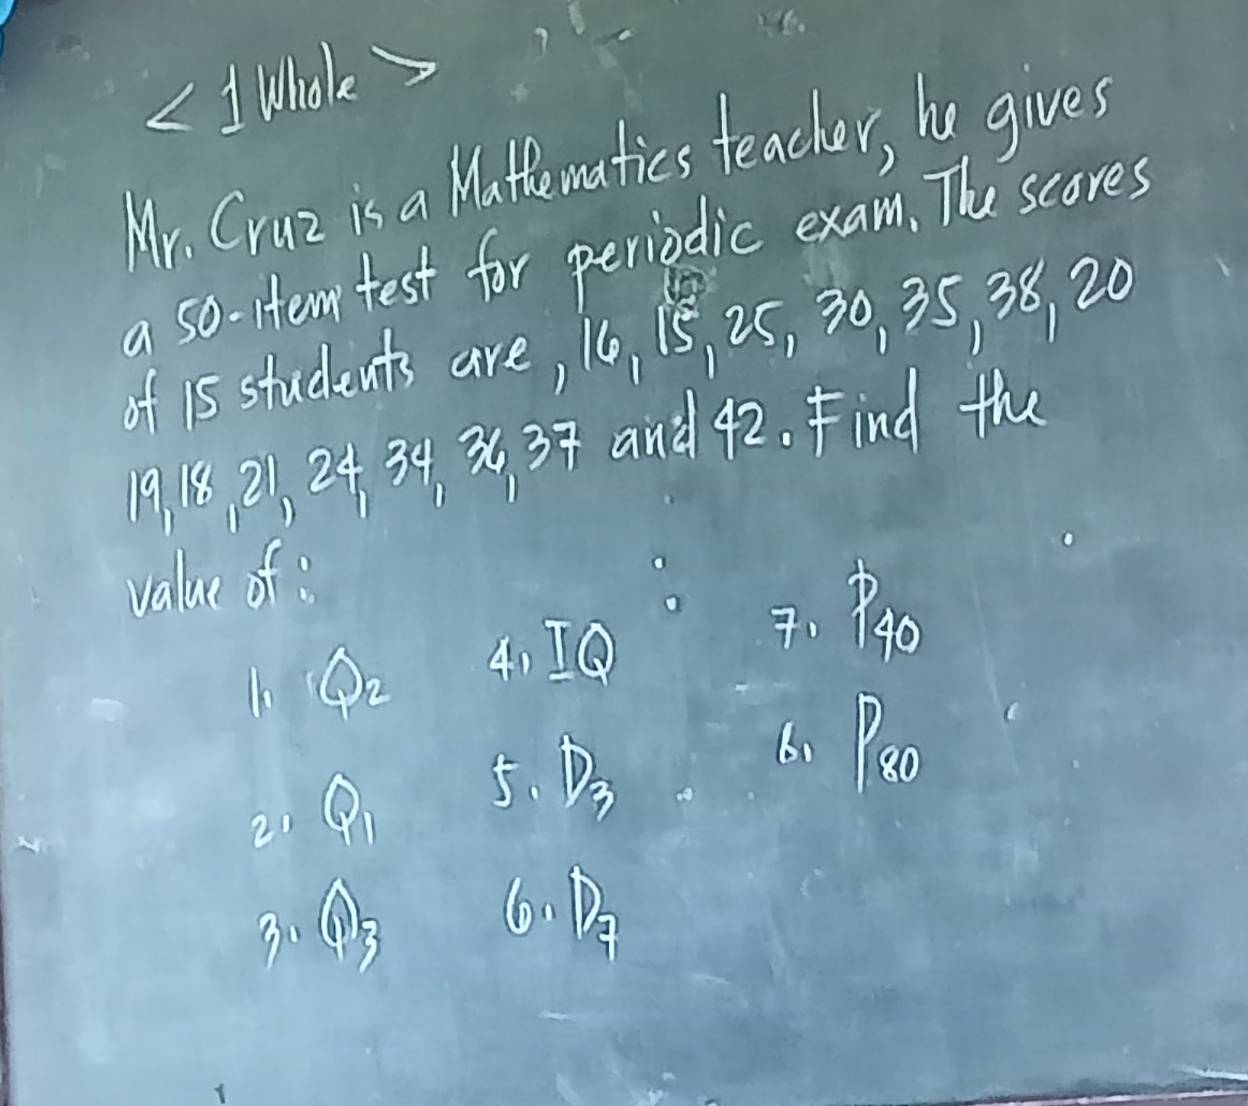 < 1 Whole >
Mr. Cruz is a Mathematics teacher, he gives
a 50-item test for periodic exam. The scores
of 15 students are, 16, 15, 25, 30, 35, 38, 20
19, 18, 21, 24, 34, 36, 37 and 42. Find the
value of:
1. Q2
4. IQ
7. P40
2. Q1
5. D3
6. P80
3. Q3
6. D7